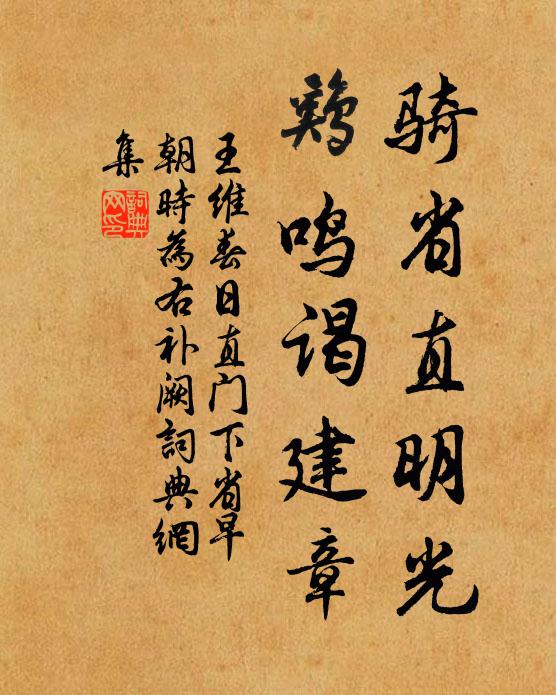 骑省直明光
鸡鸣谒建章
王维春日直门下省早
朝时为右补阙詞典網
集
詞典
网印